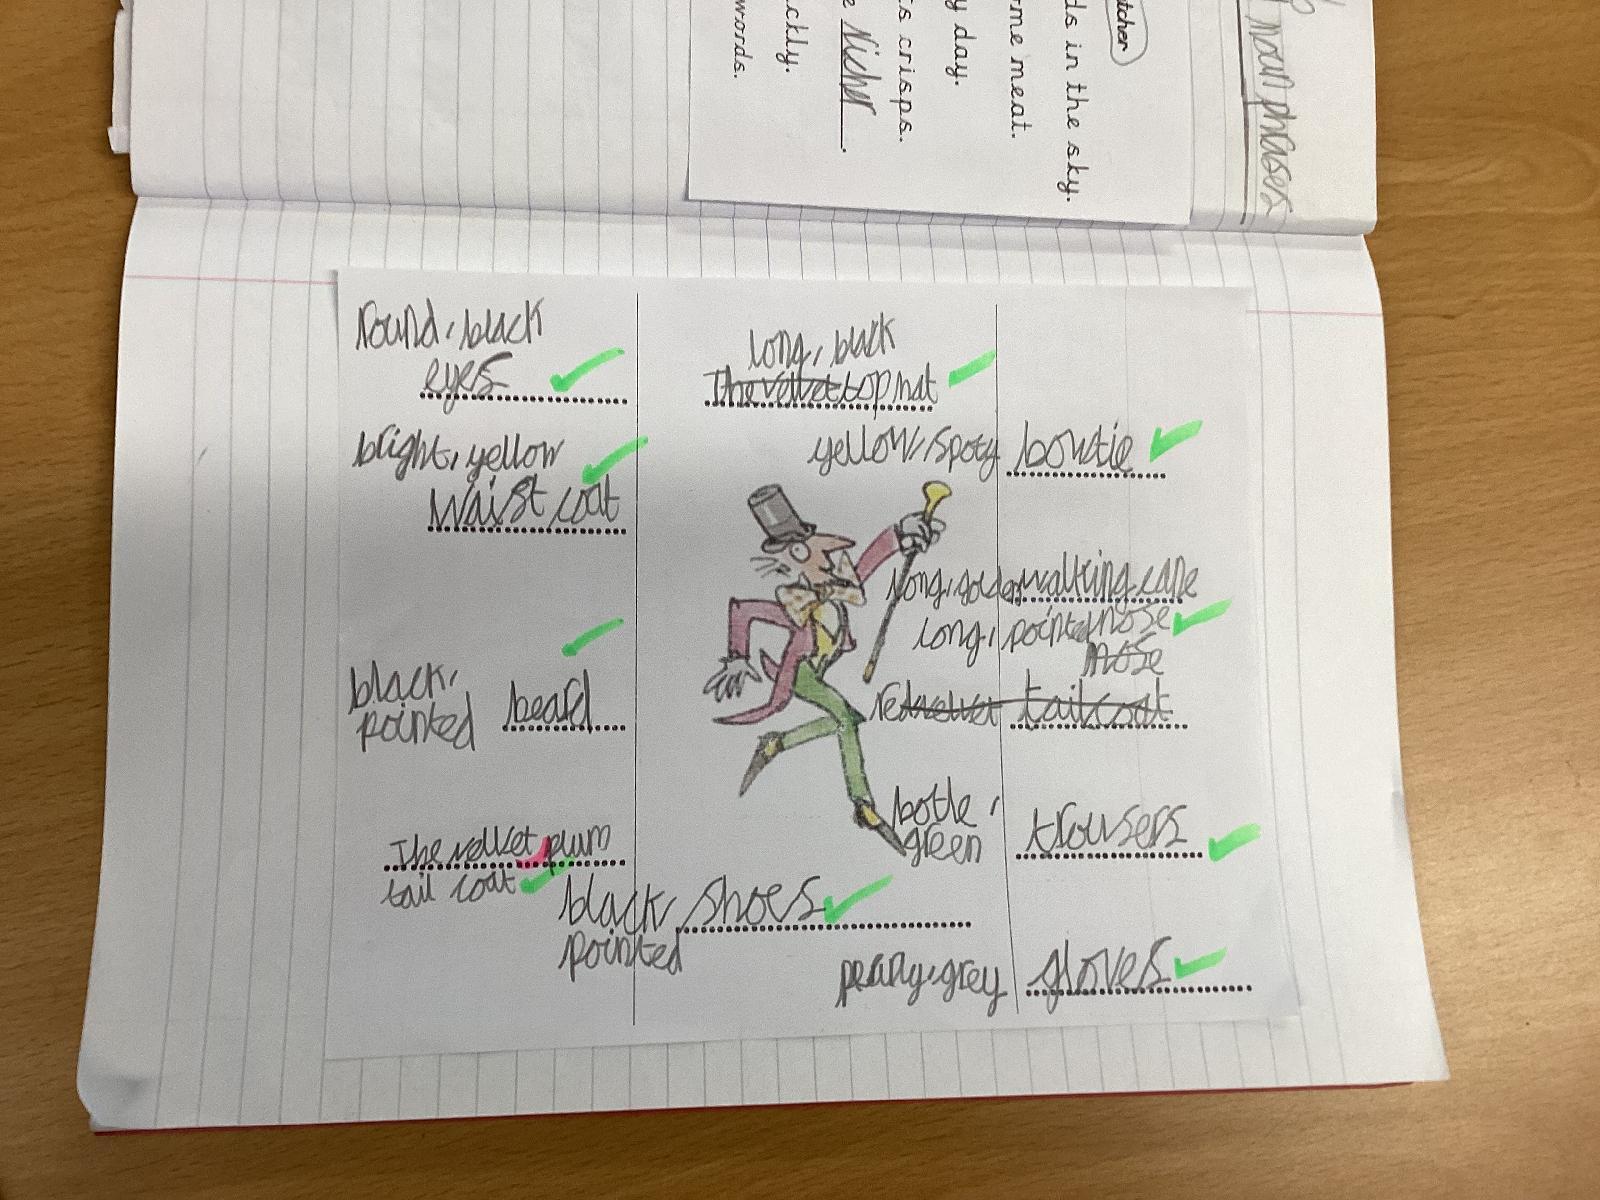 noun phrases
tcher
ds in the sky.
me meat.
y day.
s crisps.
e Nicher.
ckly.
words.
round, black
eyes
long, black
The velvet top hat
yellow, spoty bowtie
bright, yellow
waist coat
long, golden walking cane
long, pointed nose
nose
black,
pointed beard
red velvet tail coat
bottle,
green trousers
The velvet plum
tail coat
black, shoes
pointed
grey gloves